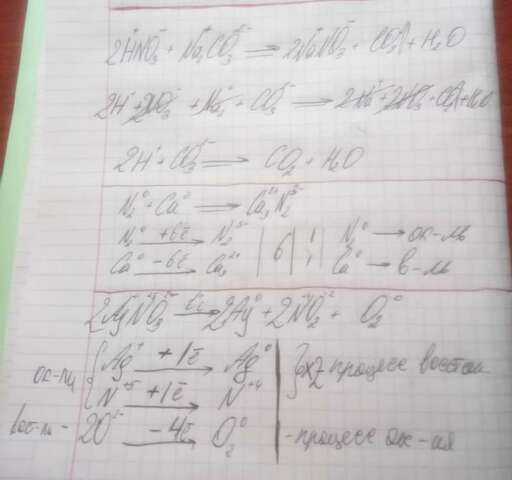 2HNO₃ + Na₂CO₃ ⟹ 2NaNO₃ + CO₂↑ + H₂O
2H⁺ + 2NO₃⁻ + Na₂⁺ + CO₃²⁻ ⟹ 2Na⁺ + 2NO₃⁻ + CO₂↑ + H₂O
2H⁺ + CO₃²⁻ ⟹ CO₂ + H₂O
N₂⁰ + Ca⁰ ⟹ Ca₃²⁺N₂³⁻
N₂⁰ +6ē → N₂³⁻ | 6 | 1 | N₂⁰ → ок-ль
Ca⁰ −6ē → Ca₃²⁺ | 1 | Ca⁰ → в-ль
2AgNO₃ t°→ 2Ag⁰ + 2NO₂ + O₂⁰
ок-ли { Ag⁺ +1ē → Ag⁰ | } процесс восстан.
N⁺⁵ +1ē → N⁺⁴
вос-ль - 2O²⁻ −4ē → O₂⁰ | - процесс ок-ия